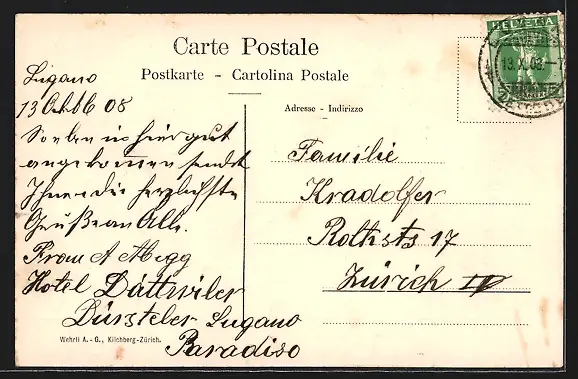 Carte Postale
Postkarte - Cartolina Postale
Adresse - Indirizzo
HELVETIA
Lugano
13 Oktb 08
Soeben in hier gut
angekommen sendet
Ihnen die herzlichste
Grüße an Alle.
Frau A Megg
Hotel Dättwiler
Dürsteler Lugano
Paradiso
Familie
Kradolfer
Rothstr 17
Zürich IV
Wehrli A.-G., Kilchberg-Zürich.